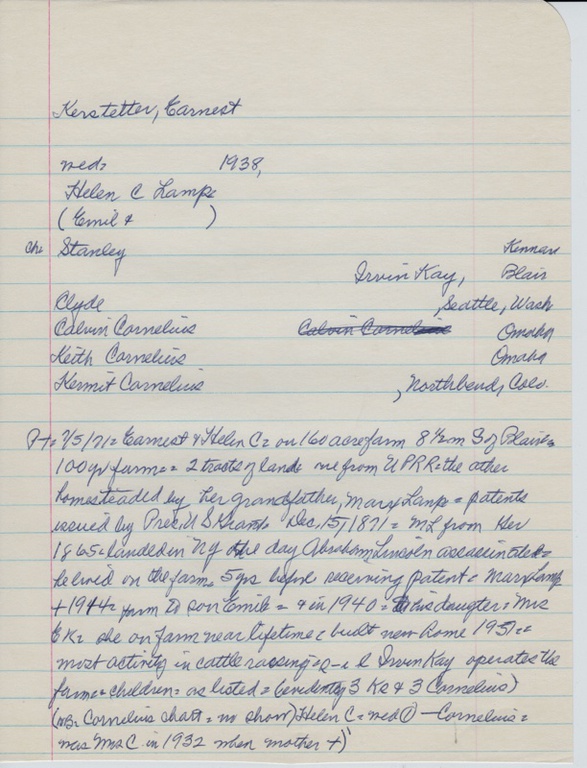 Kerstetter, Earnest
med= 1938,
Helen C Lamp
(Emil & )
ch= Stanley Kennard
Irvin Kay, Blair
Clyde , Seattle, Wash
Calvin Cornelius Calvin Cornelius Omaha
Keith Cornelius Omaha
Kermit Cornelius , Northbend, Colo.
7/5/71= Earnest & Helen C= on 160 acre farm 8½ m S of Blair=
100 yr farm= = 2 tracts of land= one from UPRR= the other
homesteaded by her grandfather, Marx Lamp = patents
issued by Pres. U S Grant Dec. 15, 1871 = ML from Ger
1865= landed in NY the day Abraham Lincoln assassinated=
he lived on the farm 5 yrs before receiving patent= Marx Lamp
+ 1944= farm to son Emil= & in 1940 = to his daughter= Mrs
EK= she on farm near lifetime= built new home 1951=
most activity in cattle raising= Irvin Kay operates the
farm= children= as listed= (evidently 3 Ks & 3 Cornelius)
(NB= Cornelius chart = no show) Helen C= med ① — Cornelius=
was Mrs C in 1932 when mother +)